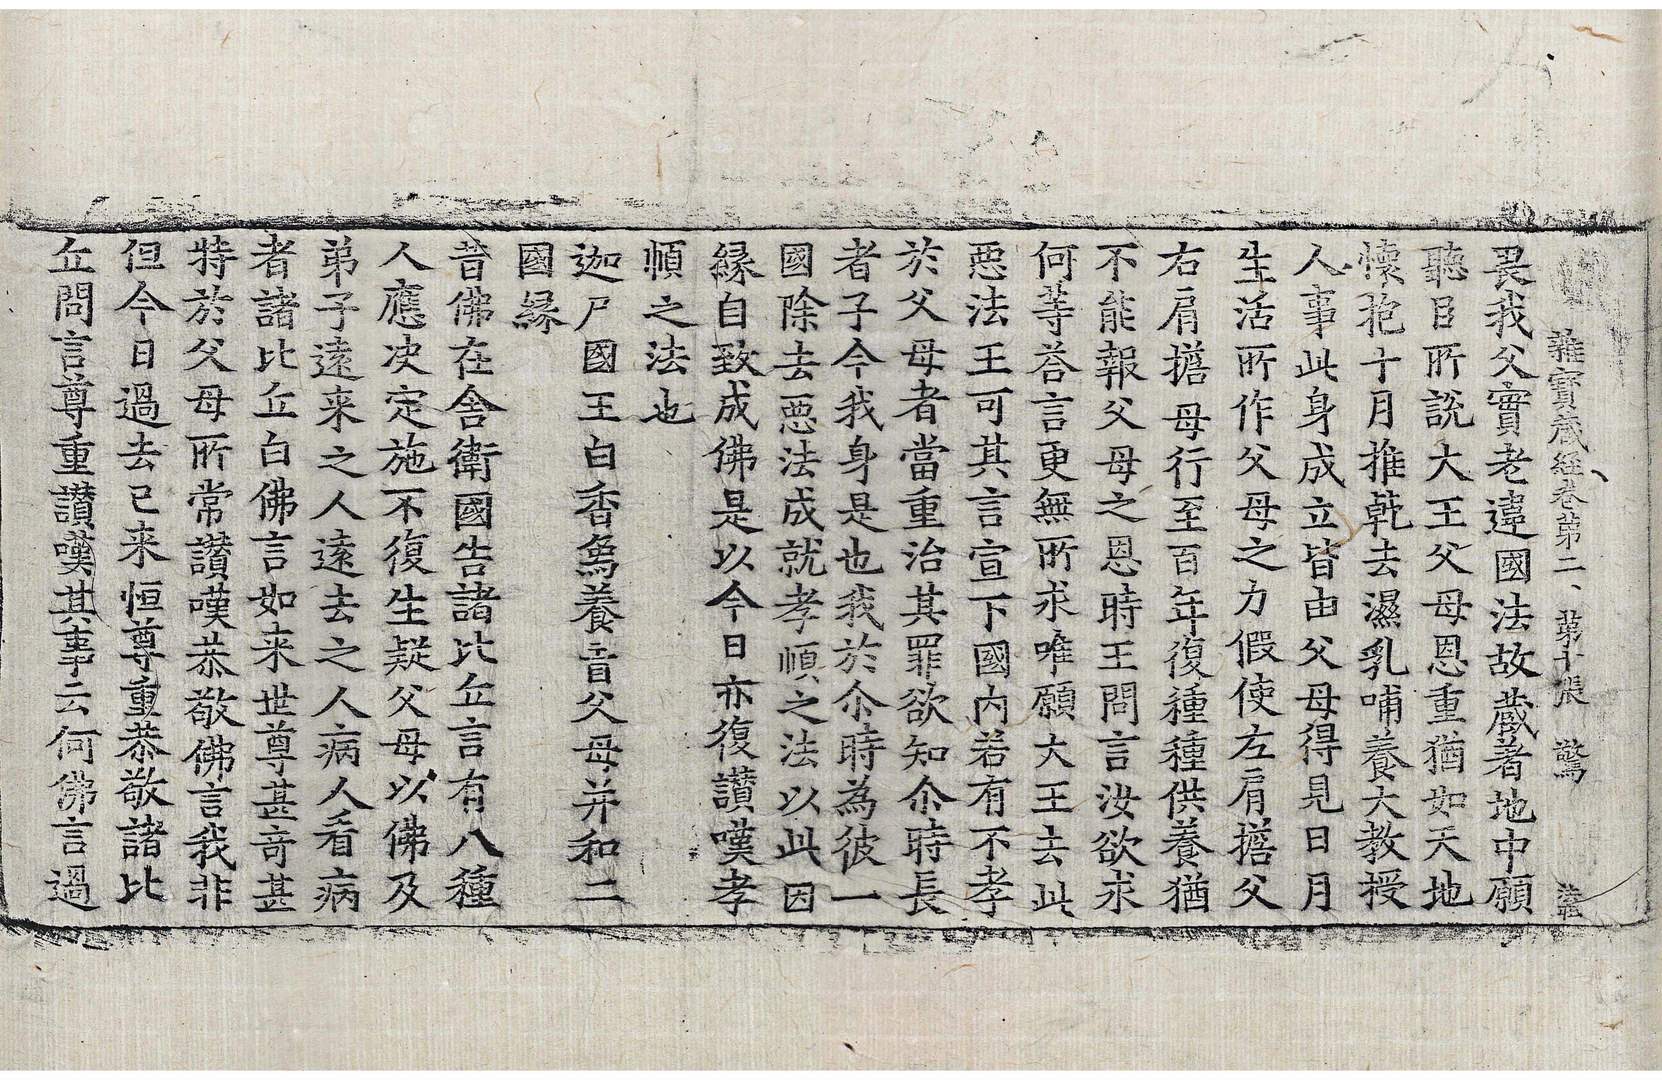 雜寶藏經卷第二、第十張 驚
畏我父實老違國法故藏著地中願
聽臣所說大王父母恩重猶如天地
懷抱十月推乾去濕乳哺養大教授
人事此身成立皆由父母得見日月
生活所作父母之力假使左肩擔父
右肩擔母行至百年復種種供養猶
不能報父母之恩時王問言汝欲求
何等荅言更無所求唯願大王去此
惡法王可其言宣下國內若有不孝
於父母者當重治其罪欲知尒時長
者子今我身是也我於尒時為彼一
國除去惡法成就孝順之法以此因
緣自致成佛是以今日亦復讚嘆孝
順之法也
迦尸國王白香象養盲父母并和二
國緣
昔佛在舍衛國告諸比丘言有八種
人應决定施不復生疑父母以佛及
弟子遠来之人遠去之人病人看病
者諸比丘白佛言如来世尊甚竒甚
特於父母所常讚嘆恭敬佛言我非
但今日過去已来恒尊重恭敬諸比
丘問言尊重讚嘆其事云何佛言過